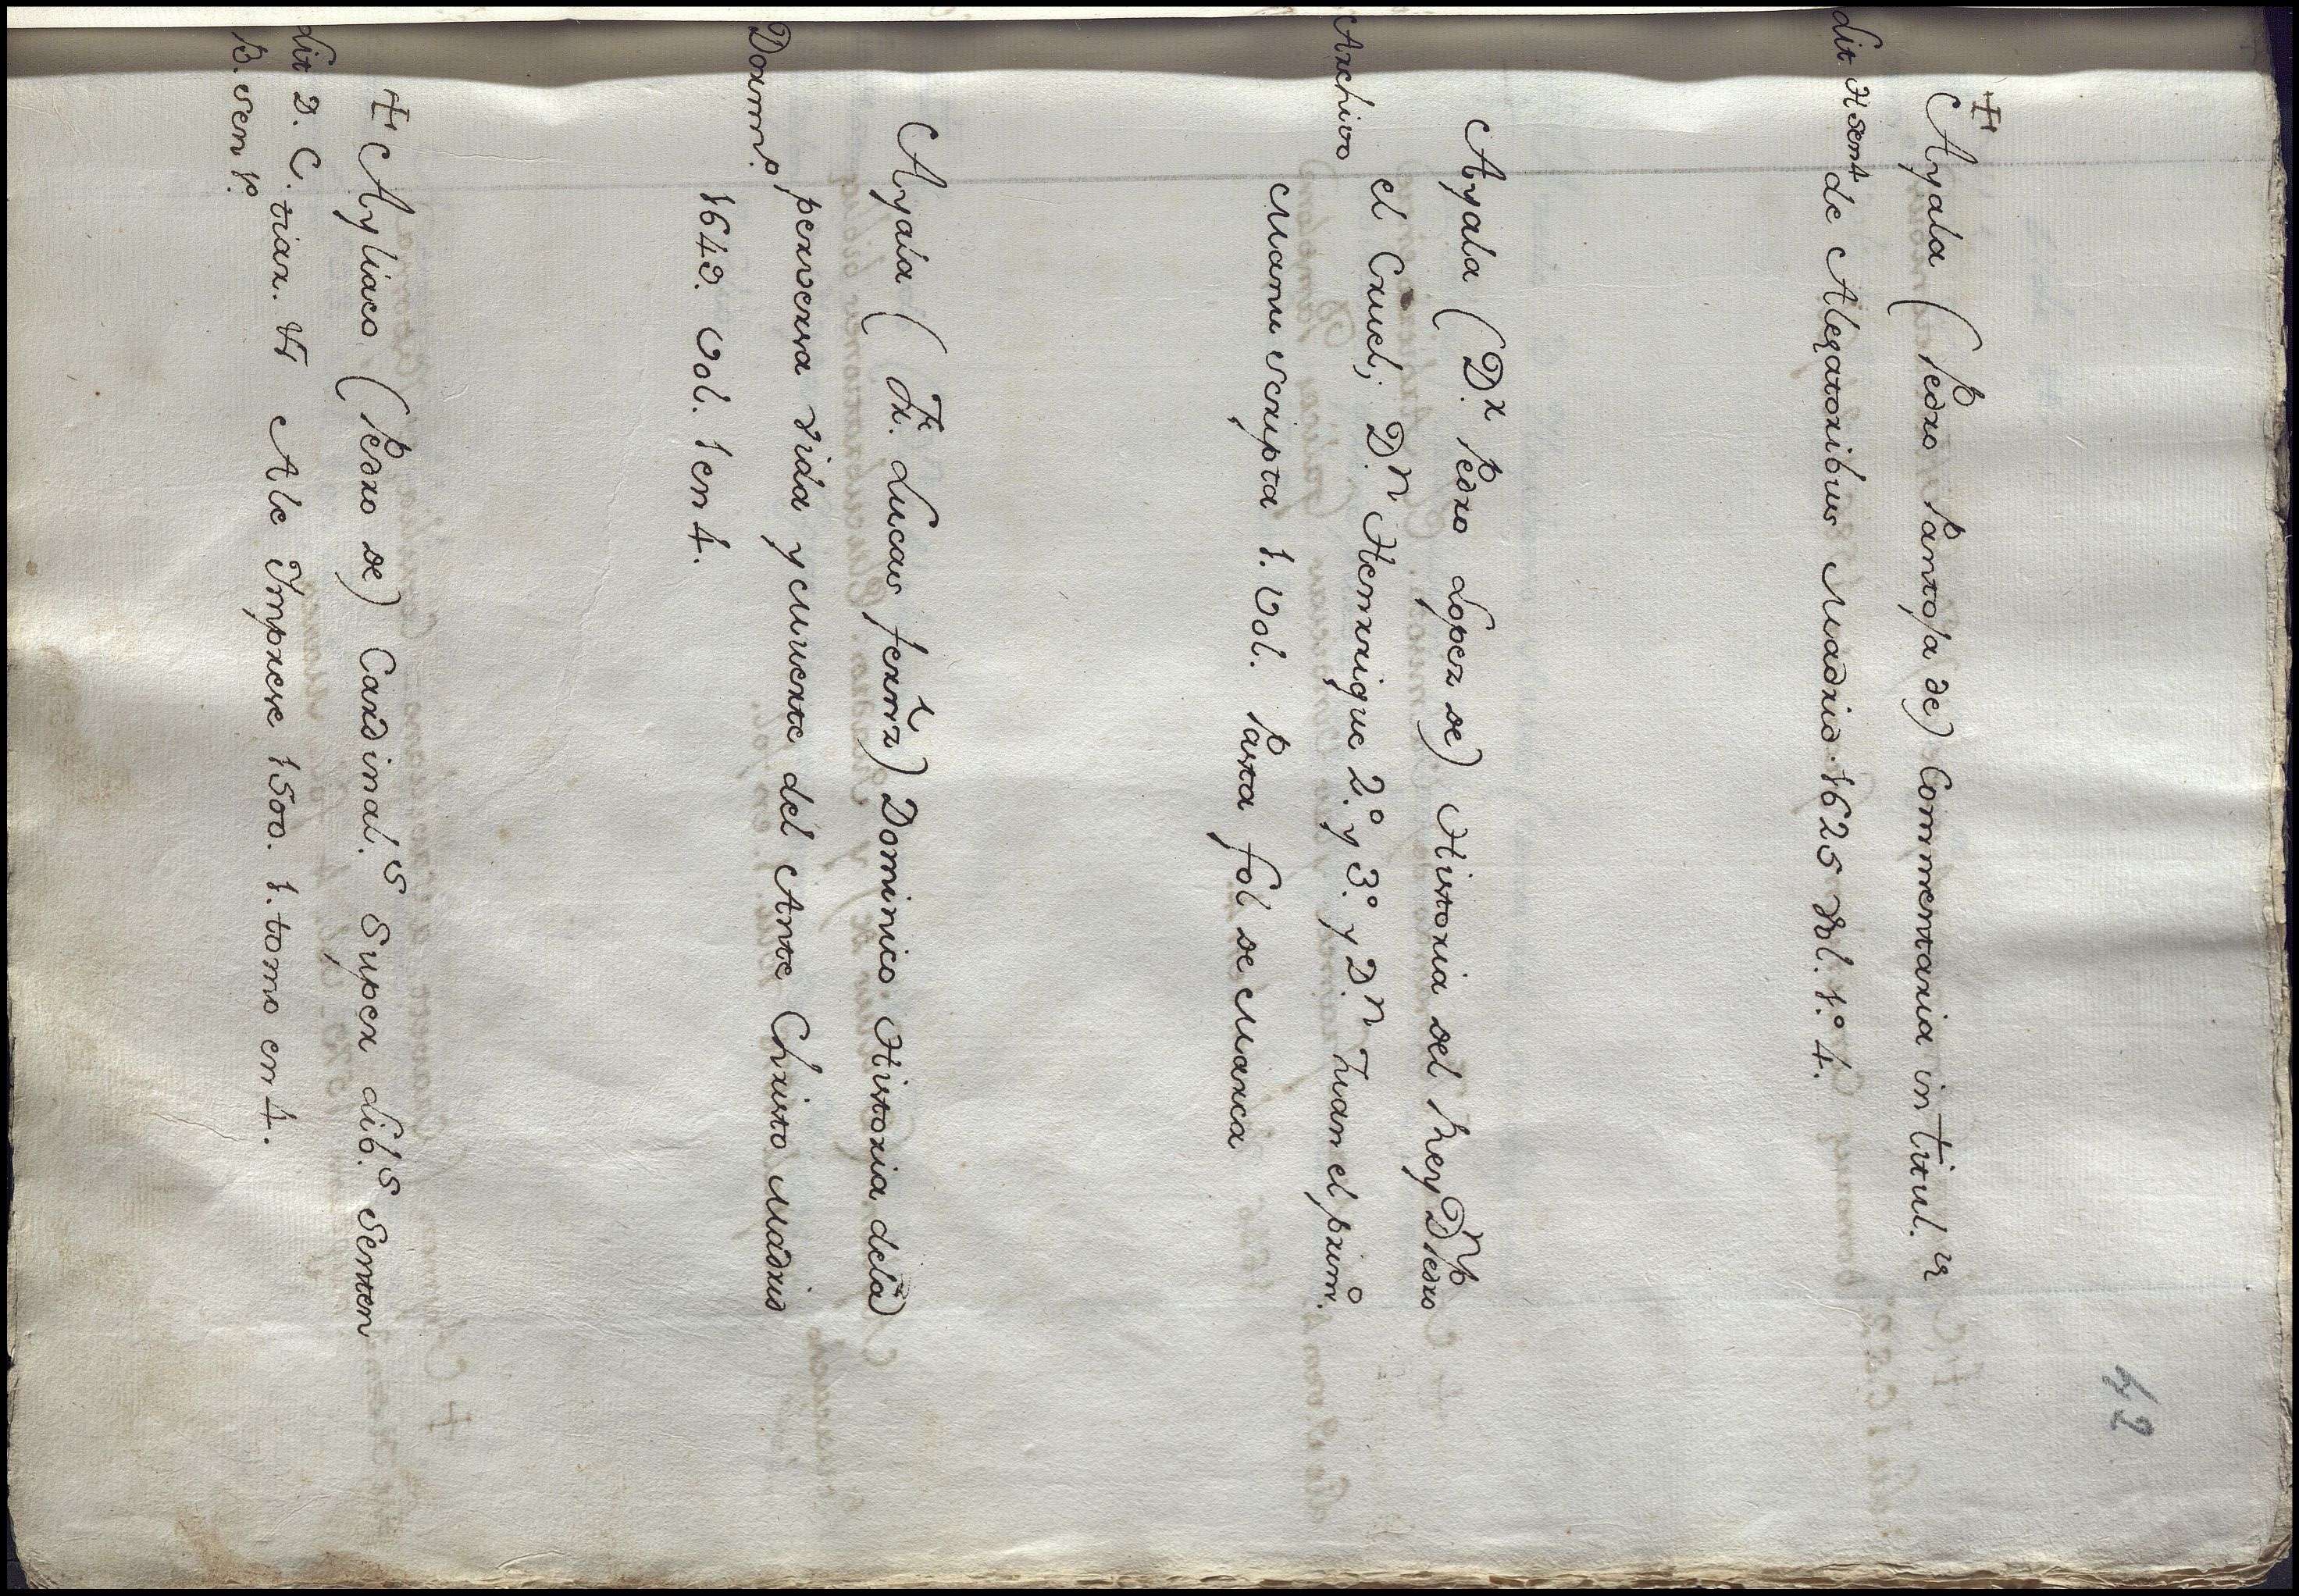 42
Ayala (Pedro Pantoja de) Commentaria in titul.
Lit H sen 4 de Alegatoribus Madrid. 1625 Vol. 1.º 4.
Ayala (D.r Pedro Lopez de) Historia del Rey D.n Pedro
Archivo el Cruel; D.n Henrrique 2.º y 3.º y D.n Juan el prim.º
Manu scripta 1. Vol. Pasta fol de Marca
Ayala (Fr. Lucas fernrz) Dominico Historia dela
Dorm.º perversa vida y Muerte del Ante Christo Madrid
1649. Vol. 1 en 4.
Ayliaco (Pedro de) Cardinal.s Super Lib.s Senten
Lit D. C. tiar. Vt Ale Imprese 1500. 1. tomo en 4.
B. sen p.